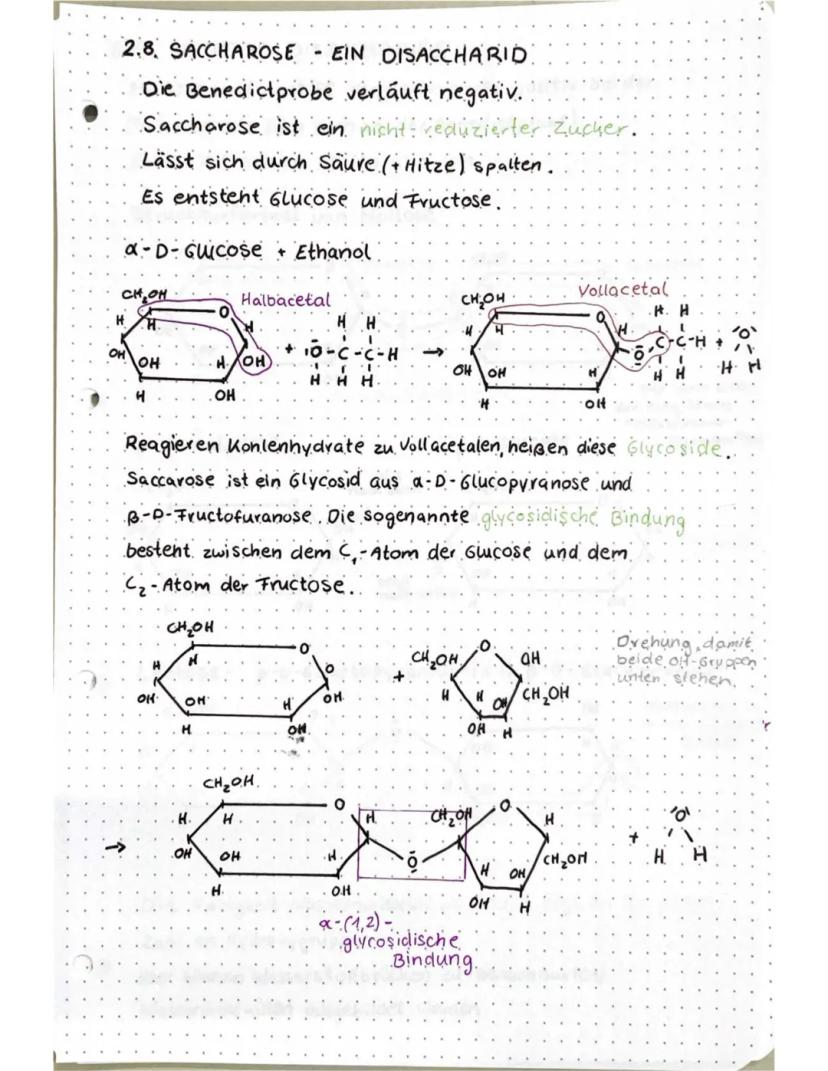 2.8. SACCHAROSE - EIN DISACCHARID
Die Benedictprobe verläuft negativ.
Saccharose ist ein nicht-reduzierter Zucker.
Lässt sich durch Säure (+ Hitze) spalten.
Es entsteht Glucose und Fructose.
α-D-Glucose + Ethanol
CH₂OH Halbacetal CH₂OH Vollacetal
H H O H H H H H H O H H H
OH OH H OH + IO-C-C-H → OH OH H O-C-C-H + O
H OH H H H H OH H H H H
Reagieren Kohlenhydrate zu Vollacetalen, heißen diese Glycoside.
Saccarose ist ein Glycosid aus α-D-Glucopyranose und
β-D-Fructofuranose. Die sogenannte glycosidische Bindung
besteht zwischen dem C₁-Atom der Glucose und dem
C₂-Atom der Fructose.
CH₂OH
H H O O + CH₂OH O OH
OH OH H OH H H OH CH₂OH
H OH OH H
Drehung, damit
beide OH-Gruppen
unten stehen.
CH₂OH
H H O H CH₂OH O H O
→ OH OH H O H OH CH₂OH + H H
H OH OH H
α-(1,2)-
glycosidische
Bindung